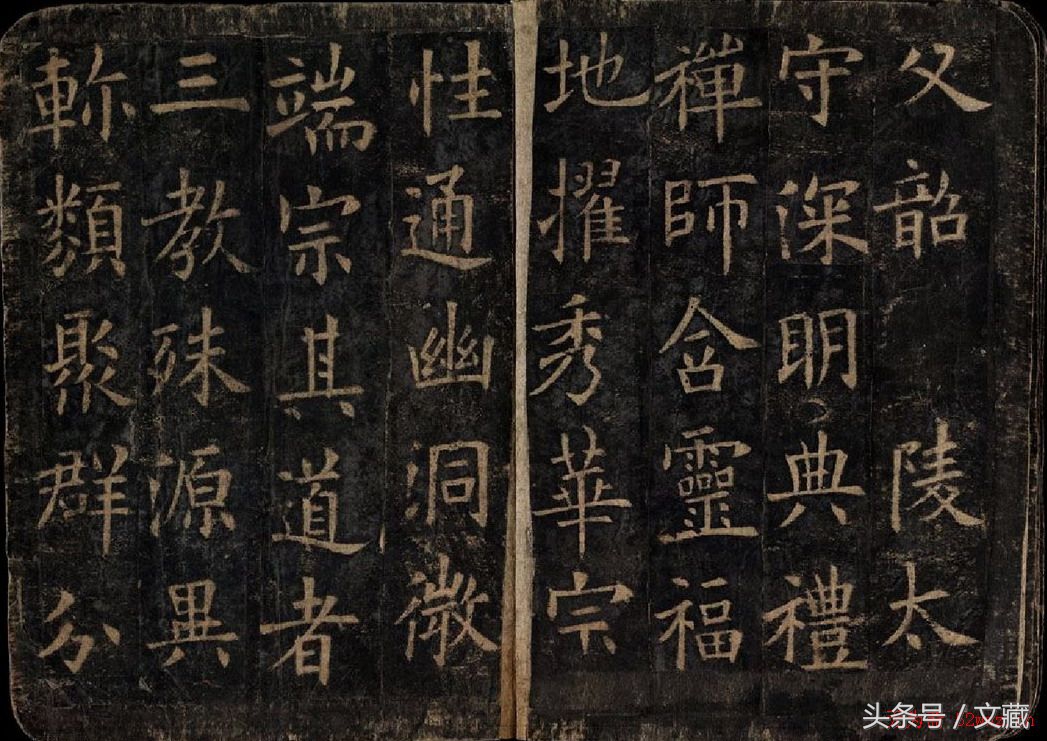 父韶陵太
守深明典禮
禪師含靈福
地擢秀華宗
性通幽洞微
端宗其道者
三教殊源異
軫類聚群分
头条号 / 文藏